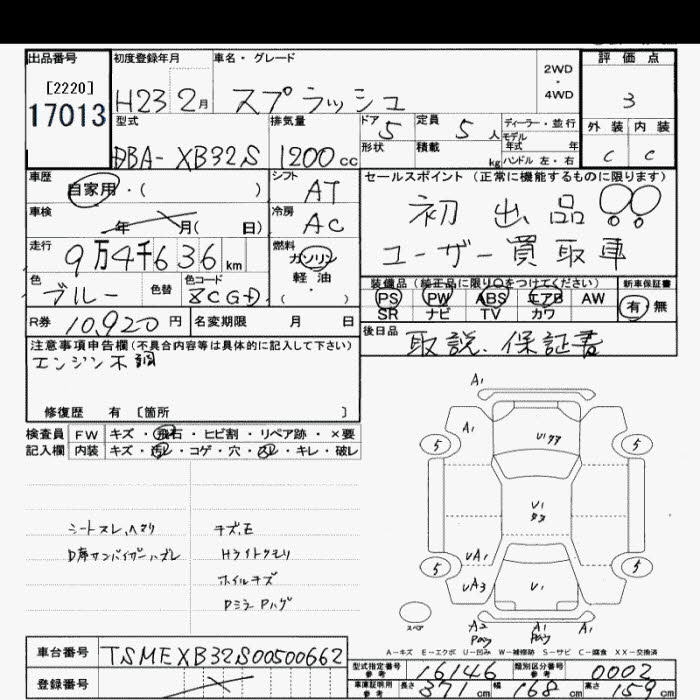 出品番号 初度登録年月 車名・グレード 2WD・4WD 評価点
[2220]
17013 H23 2月 スプラッシュ 3
型式 排気量 ドア 5 定員 5人 ディーラー・並行 外装 内装
モデル年式 年
DBA-XB32S 1200cc 形状 積載 kg ハンドル 左・右 C C
車歴 自家用・( ) シフト AT セールスポイント (正常に機能するものに限ります)
車検 年 月( 日) 冷房 AC 初出品!!
走行 9万4千636km 燃料 ガソリン 軽油 ・( ) ユーザー買取車
色 ブルー 色替 色コード ZCG-D 装備品 (純正品に限り○をつけてください) 新車保証書
PS PW ABS エアB AW 有・無
SR ナビ TV カワ
R券 10,920円 名変期限 月 日 後日品 取説、保証書
注意事項申告欄(不具合内容等は具体的に記入して下さい)
エンジン不調
修復歴 有 [箇所 ]
検査員 FW キズ・飛石・ヒビ割・リペア跡・×要
記入欄 内装 キズ・汚レ・コゲ・穴・スレ・キレ・破レ
A1
A1
5 5
U1
U1
UA1
5 5
UA3 U1
スペア A2 A1 A1
シートスレ、ヘタリ キズ、モ
D席サンバイザーハズレ Hライトクモリ
ホイルキズ
DミラーPハゲ
A-キズ E-エクボ U-凹み W-補修跡 S-サビ C-腐食 XX-交換済
車台番号 TSMEXB32S00500662
型式指定番号 参考 16146 類別区分番号 参考 0002
登録番号 車庫証明用 参考 長さ 371cm 幅 168cm 高さ 159cm